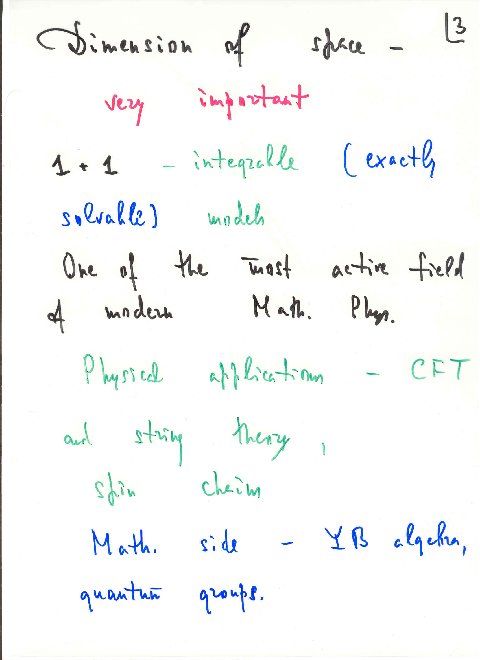 Dimension of space - 3
very important
1 + 1 - integrable (exactly
solvable) models
One of the most active field
of modern Math. Phys.
Physical applications - CFT
and string theory,
spin chains
Math. side - YB algebra,
quantum groups.